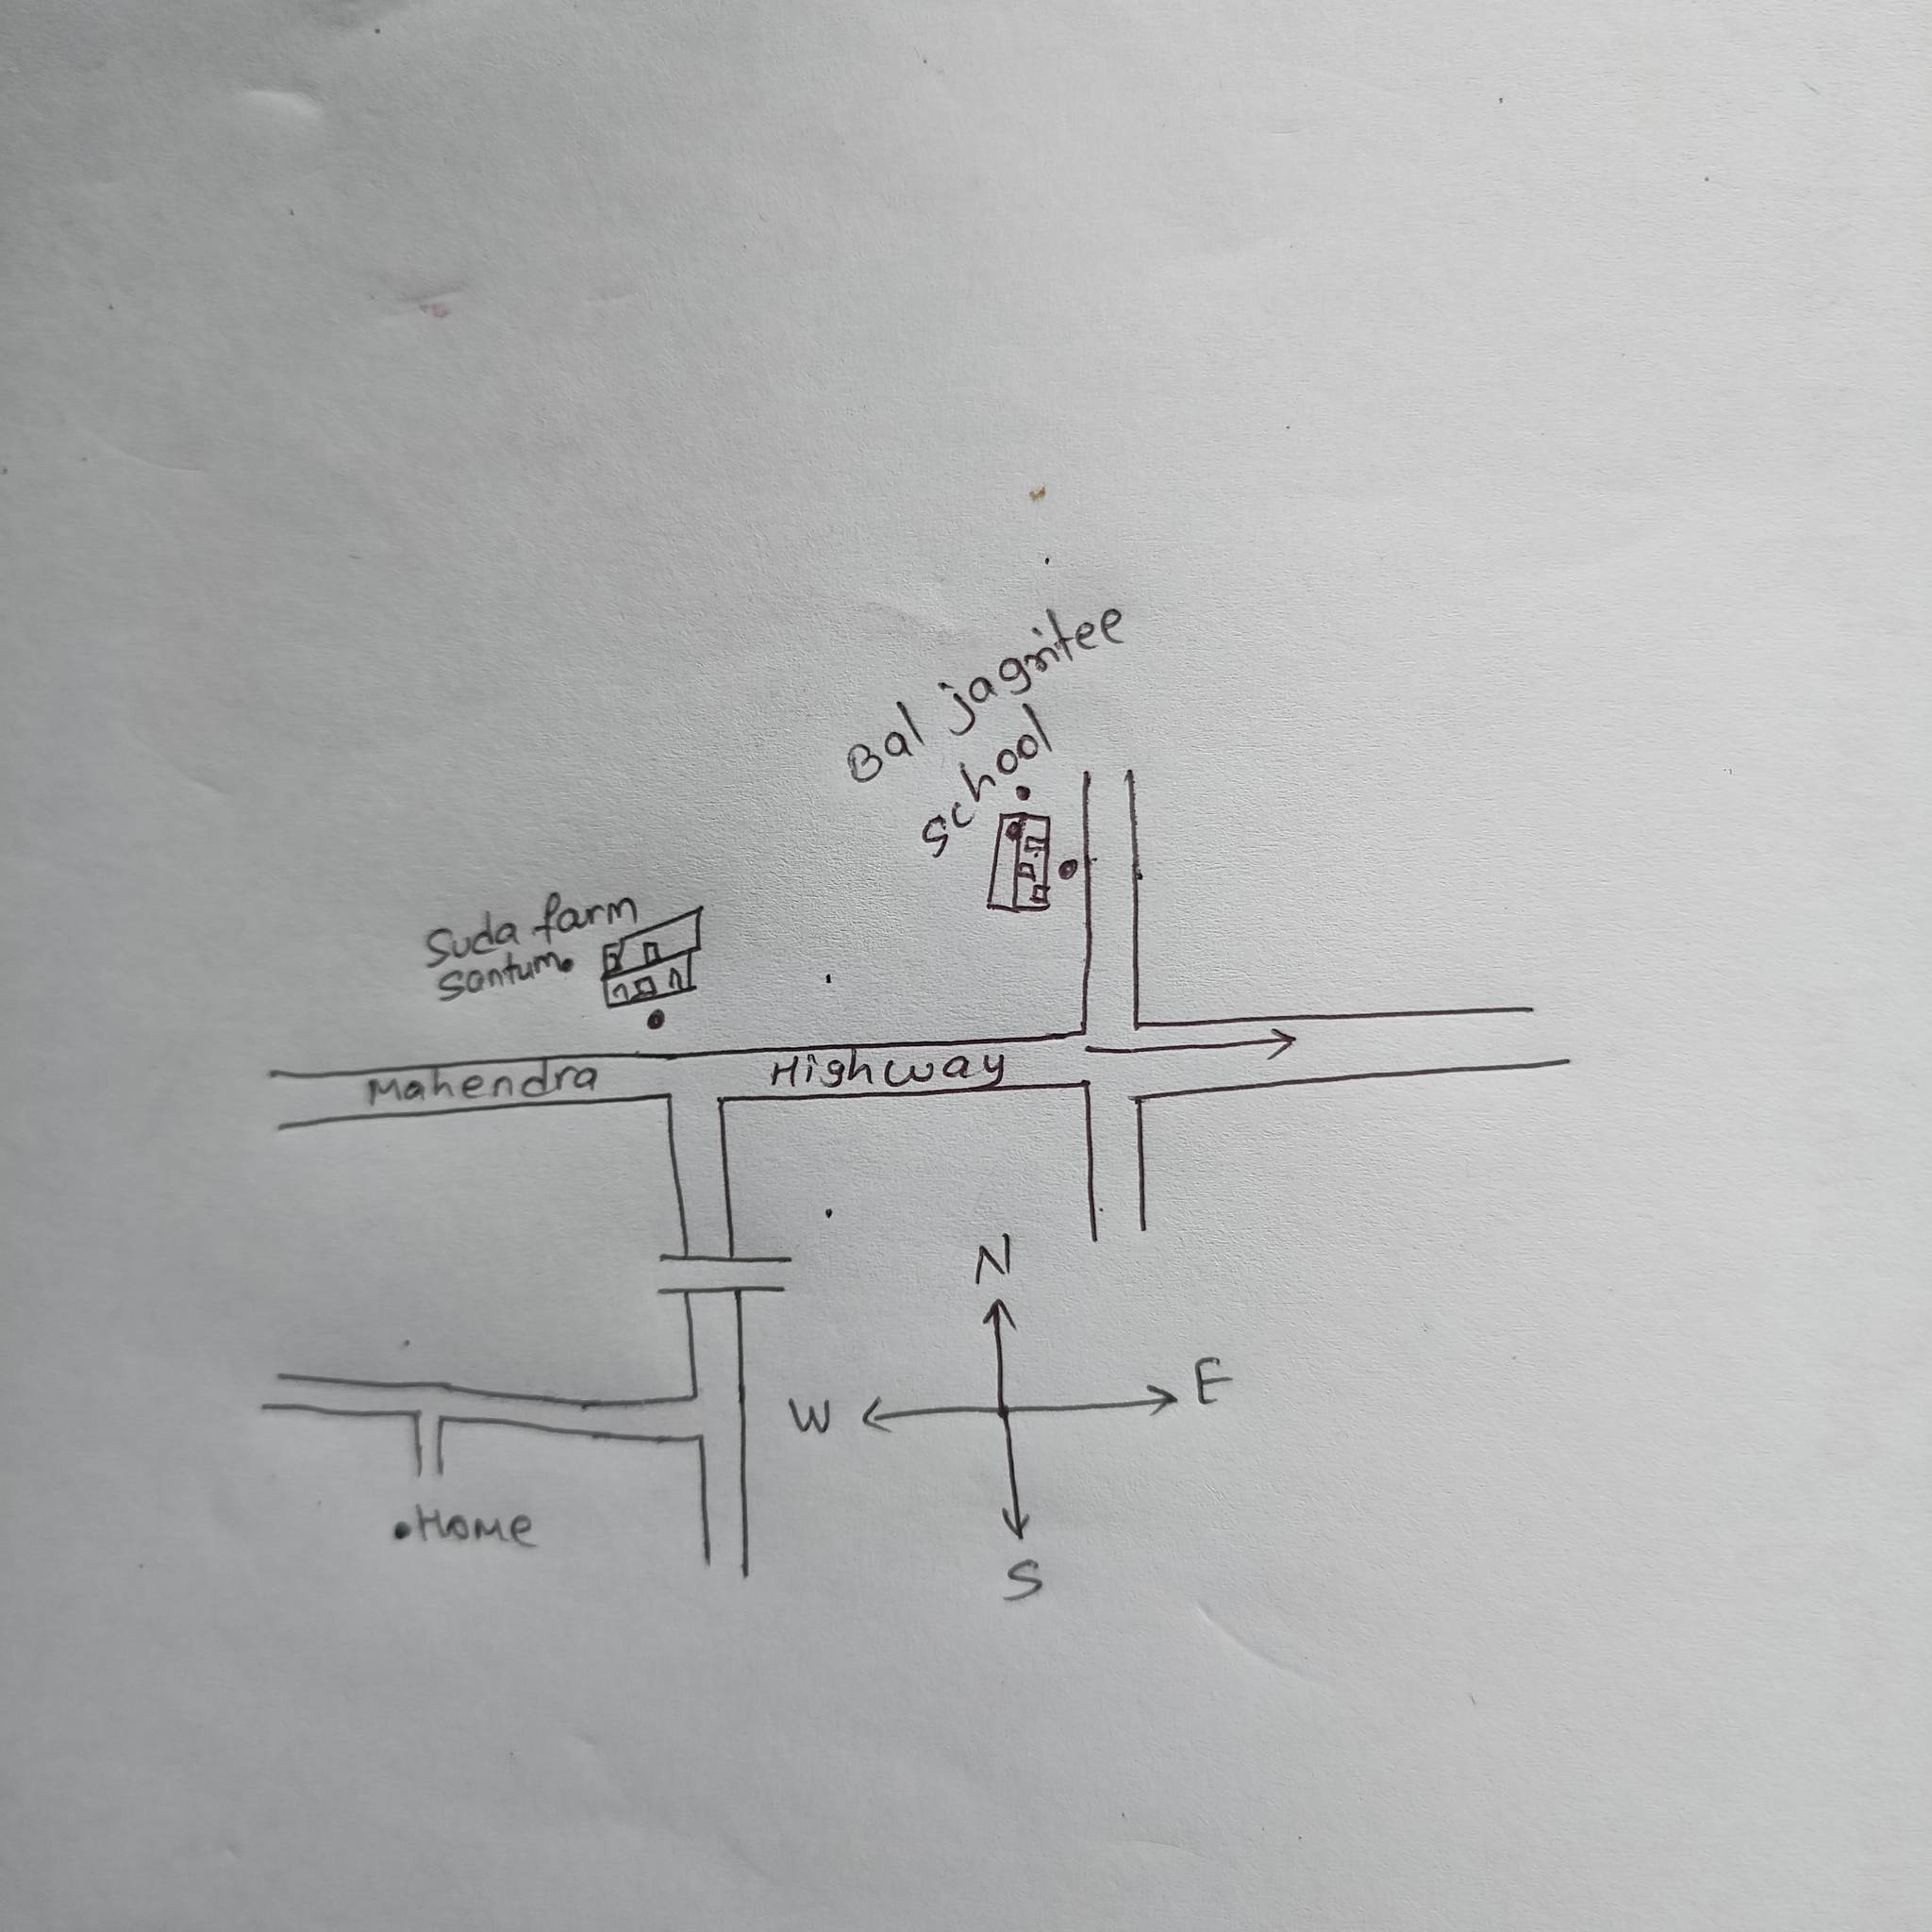 Bal jagritee
school
Suda farm
santum
Mahendra Highway
N
W E
S
Home